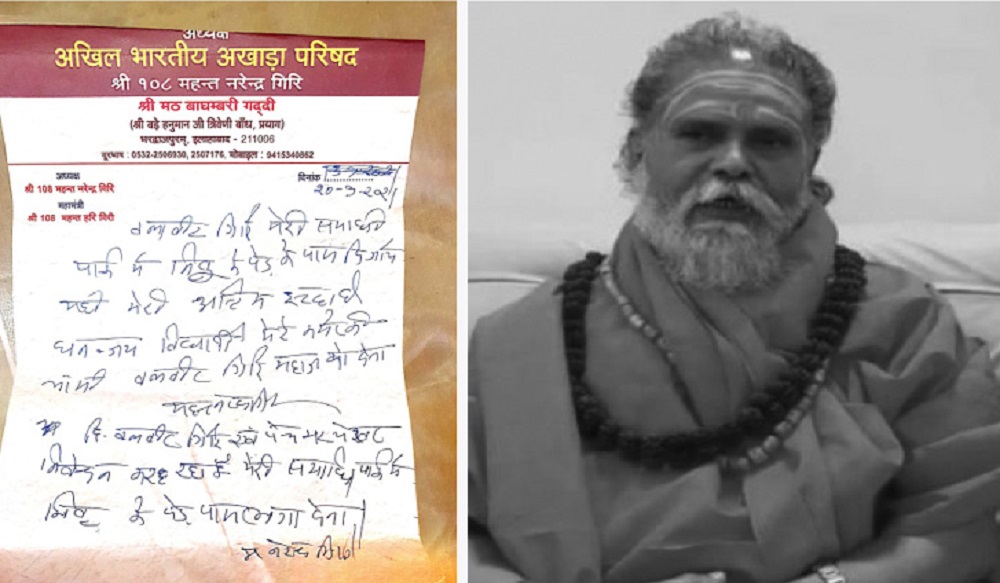 अध्यक्ष
अखिल भारतीय अखाड़ा परिषद
श्री १०८ महन्त नरेन्द्र गिरि
श्री मठ बाघम्बरी गद्दी
(श्री बड़े हनुमान जी त्रिवेणी बाँध, प्रयाग)
भरद्वाजपुरम्, इलाहाबाद - 211006
दूरभाष : 0532-2506930, 2507176, मोबाइल : 9415340662
अध्यक्ष
श्री 108 महन्त नरेन्द्र गिरि
महामंत्री
श्री 108 महन्त हरि गिरी
दिनांक
20-9-2021
बलवीर गिरि मेरी समाधी
पार्क में निबू के पेड़ के पास
यही मेरी अन्तिम
धनन्जय विद्यार्थी मेरे कमरे की
बलवीर गिरि महाराज को देना
बलवीर गिरि एवं पंच परमेश्वर
निवेदन कर रहा हूँ मेरी समाधि पार्क में
के पेड़ पास लगा देना
म नरेन्द्र गिरि